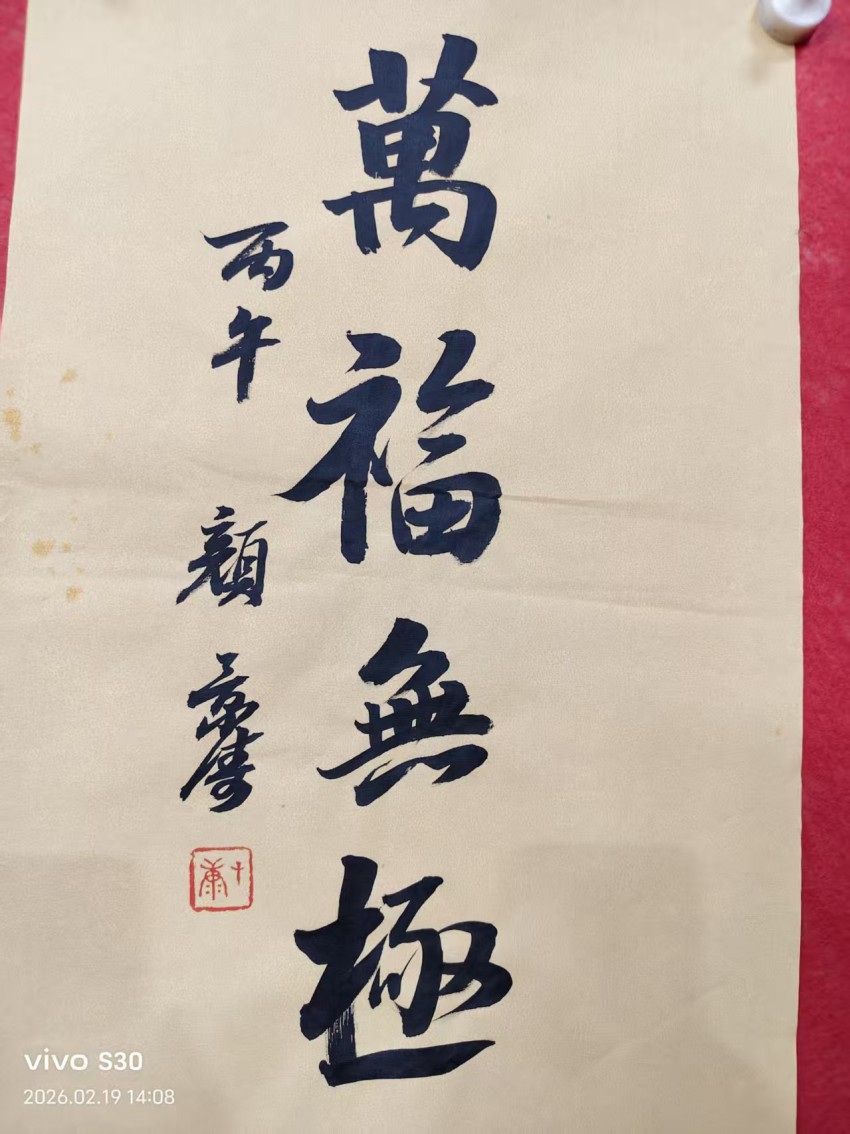 萬福無極
丙午 顏景
vivo S30
2026.02.19 14:08